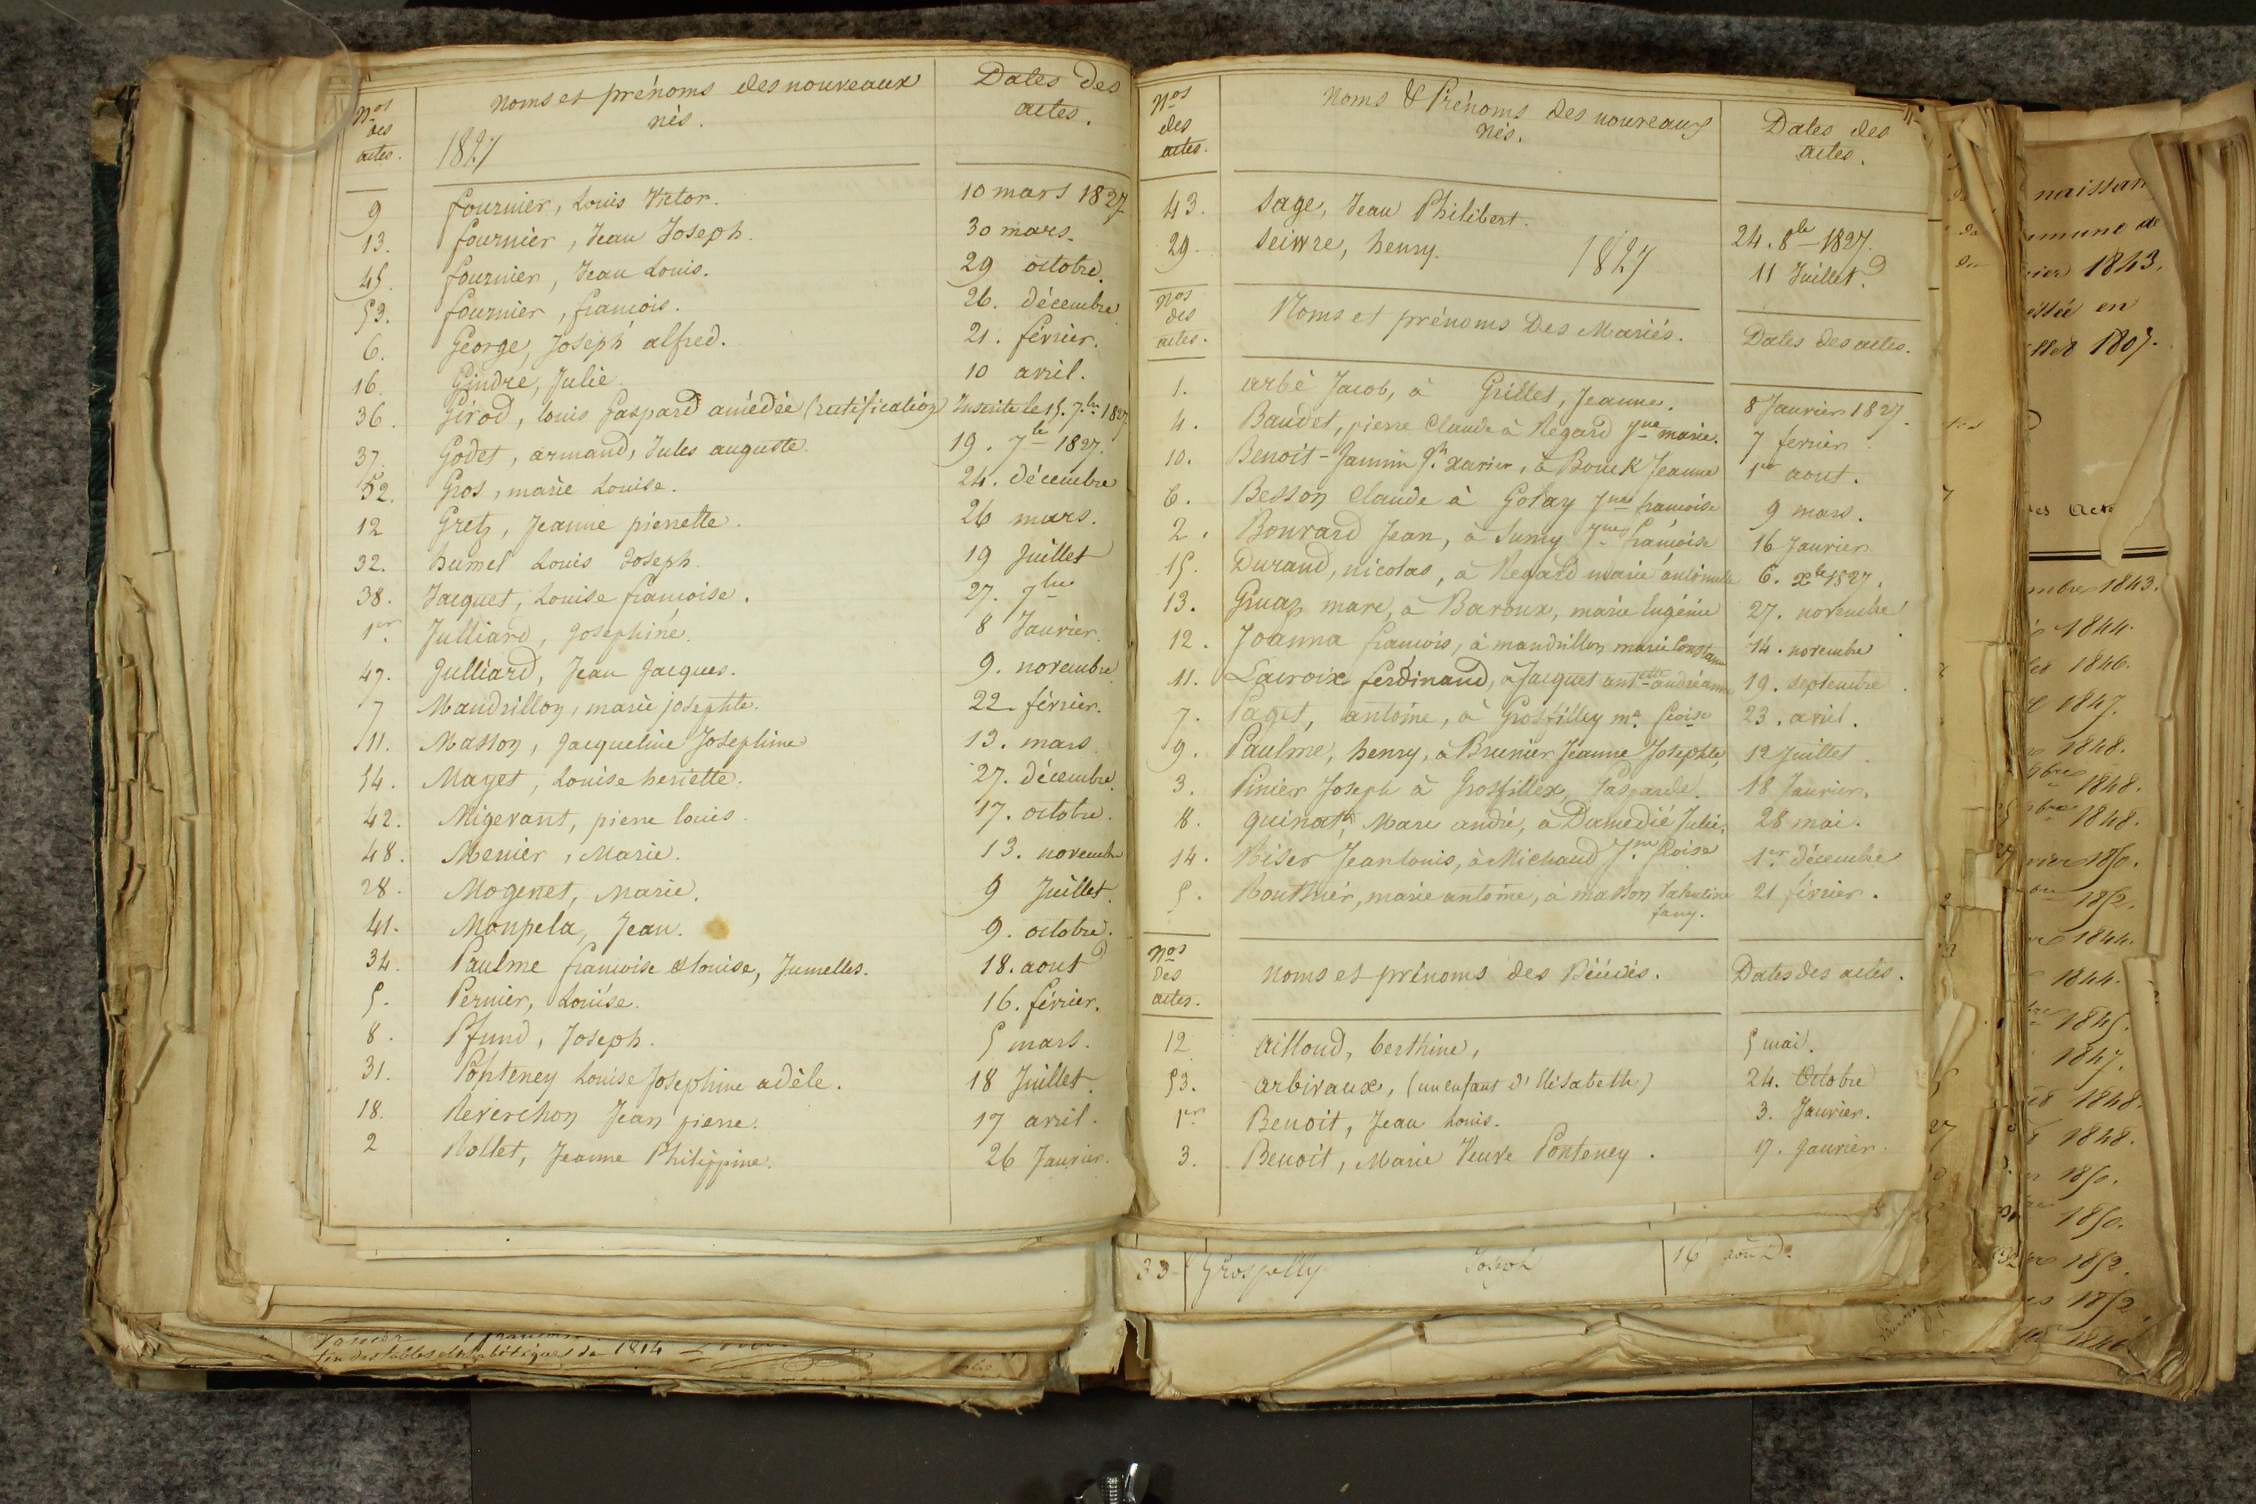 Nos des actes.
Noms et prénoms des nouveaux nés.
1827
Dates des actes.
9 fournier, Louis Victor. 10 mars 1827
13. fournier, Jean Joseph. 30 mars.
45. fournier, Jean Louis. 29 octobre.
53. fournier, francois. 26. décembre
6. George, Joseph alfred. 21. février.
16. Gindre, Julie. 10 avril.
36. Girod, louis Gaspard amédée (rectification) Inscrite le 15. 7bre 1827.
37. Godet, armand, Jules auguste. 19. 7bre 1827.
52. Gros, marie Louise. 24. décembre
12 Gretz, Jeanne pierrette. 26 mars.
32. humel Louis Joseph. 19 Juillet
38. Jacquet, Louise francoise. 27. 7bre
1er Julliard, Josephine. 8 Janvier.
47. Julliard, Jean Jacques. 9. novembre
7 Mandrillon, marie josephte. 22. février.
11. Masson, Jacqueline Josephine 13. mars
54. Mayet, Louise heriette. 27. décembre.
42. Migevant, pierre louis. 17. octobre.
48. Menier, Marie. 13. novembre
28. Mogenet, Marie. 9 Juillet.
41. Monpela, Jean. 9. octobre.
34. Paulme francoise & louise, Jumelles. 18. aout
5. Pernier, Louise. 16. février.
8. Pfund, Joseph. 5 mars.
31. Ponteney Louise Josephine adèle. 18 Juillet.
18. Reverchon Jean pierre. 17 avril.
2 Rollet, Jeanne Philippine. 26 Janvier.
Nos des actes.
Noms & Prénoms des nouveaux nés.
Dates des actes.
43. Sage, Jean Philibert. 24. 8bre 1827.
29. Seivre, henry. 1827 11 Juillet.
Nos des actes.
Noms et prénoms Des Mariés.
Dates des actes.
1. arbé Jacob, à Grillet, Jeanne. 8 Janvier 1827.
4. Baudet, pierre Claude à Regard Jne marie. 7 fevrier.
10. Benoit-Jannin Jh. Xavier, à Bouck Jeanne 1er aout.
6. Besson Claude à Golay Jne francoise 9 mars.
2. Bonvard Jean, à Jne francoise 16 Janvier
15. Durand, nicolas, à Regard marie antoinette 6. Xbre 1827.
13. Gruaz marc, à Baroux, marie Eugénie 27. novembre
12. Joanna francois, à mandrillon marie Constance 14. novembre
11. Lacroix ferdinand, à Jacquet antette andréanne 19. septembre
7. Paget, antoine, à Grosfilley me. froise 23. avril.
9. Paulme, henry, à Brunier Jeanne Josephte, 12 Juillet
3. Pinier Joseph à Grosfillex, Gasparde. 18 Janvier.
8. quinath, Marc andré, à Damedié Julie. 28 mai.
14. Riser Jeanlouis, à Michaud Jne froise 1er décembre
5. Routhier, marie antoine, à masson 21 février.
fany.
Nos des actes.
noms et prénoms des Décédés.
Dates des actes.
12 Ailloud, berthine, 5 mai.
53. arbivaux, (un enfant d' Elisabeth) 24. Octobre
1er Benoit, Jean Louis. 3. Janvier.
3. Benoit, Marie Veuve Ponteney. 17. Janvier.
33 Joseph 16
fin des tables alphabétiques de 1814
naissan
1843.
en
1807.
1843.
1844.
1846.
1847.
1848.
1848.
1848.
1850.
1852.
1844.
1844.
1845.
1847.
1848.
1848.
1850.
1850.
1852.
1852
1846